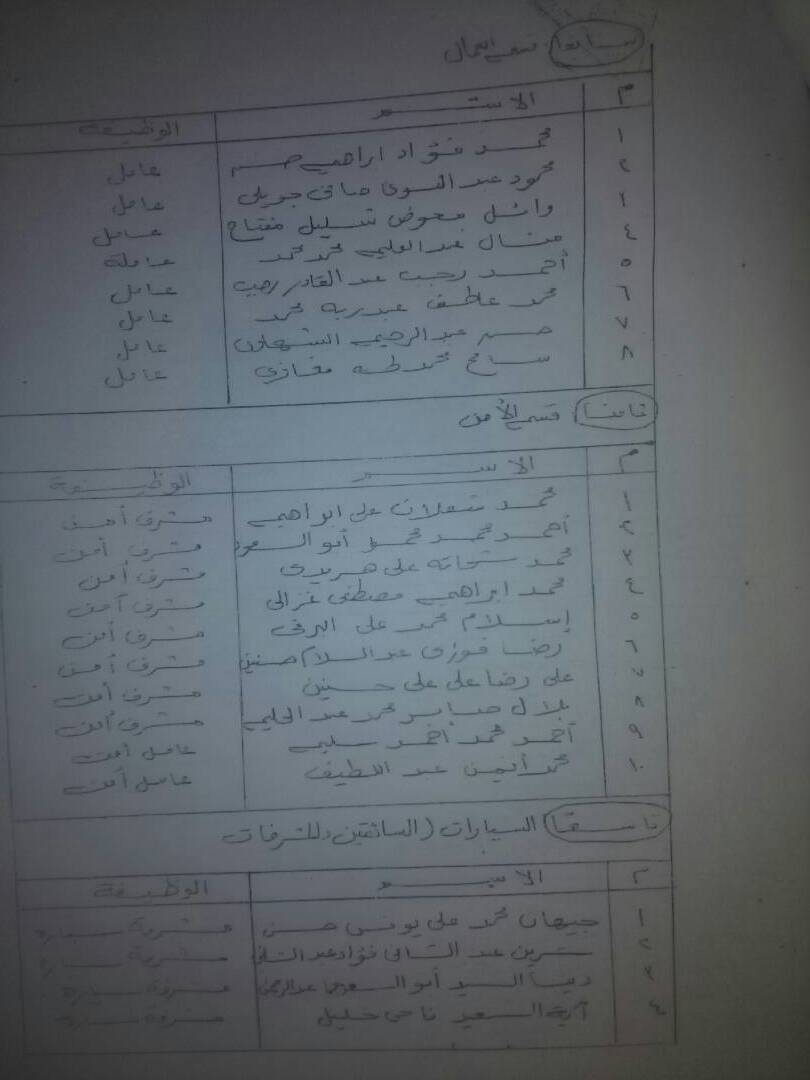 سابعا: قسم العمال
م الاسم الوظيفة
١ محمد فؤاد ابراهيم حسن عامل
٢ محمود عبد القوى صافى جويلى عامل
٣ وائل معوض شليل مفتاح عامل
٤ منال عبد العليم محمد محمد عاملة
٥ أحمد رجب عبد القادر رجب عامل
٦ محمد عاطف عبد ربه محمد عامل
٧ حسن عبد الرحيم عامل
٨ سامح محمد طه مغازى عامل
ثامنا قسم الأمن
م الاسم الوظيفة
١ محمد شعلان على ابراهيم مشرف أمن
٢ أحمد محمد محمد أبو السعود مشرف أمن
٣ محمد شحاته على هريدى مشرف أمن
٤ محمد ابراهيم مصطفى غزالى مشرف أمن
٥ إسلام محمد على البرقى مشرف أمن
٦ رضا فوزى عبد السلام حسنين مشرف أمن
٧ على رضا على على حسنين مشرف أمن
٨ بلال صابر محمد عبد الحليم مشرف أمن
٩ أحمد محمد أحمد سليم عامل أمن
١٠ محمد أيمن عبد اللطيف عامل أمن
تاسعا السيارات (السائقين والمشرفات
م الاسم الوظيفة
١ جيهان محمد على يونس حسن مشرفة سياره
٢ شرين عبد الشافى فؤاد عبد الشافى مشرفة سياره
٣ دينا السيد أبو السعود عبد الرحمن مشرفة سياره
٤ آية السعيد ناجى خليل مشرفة سياره